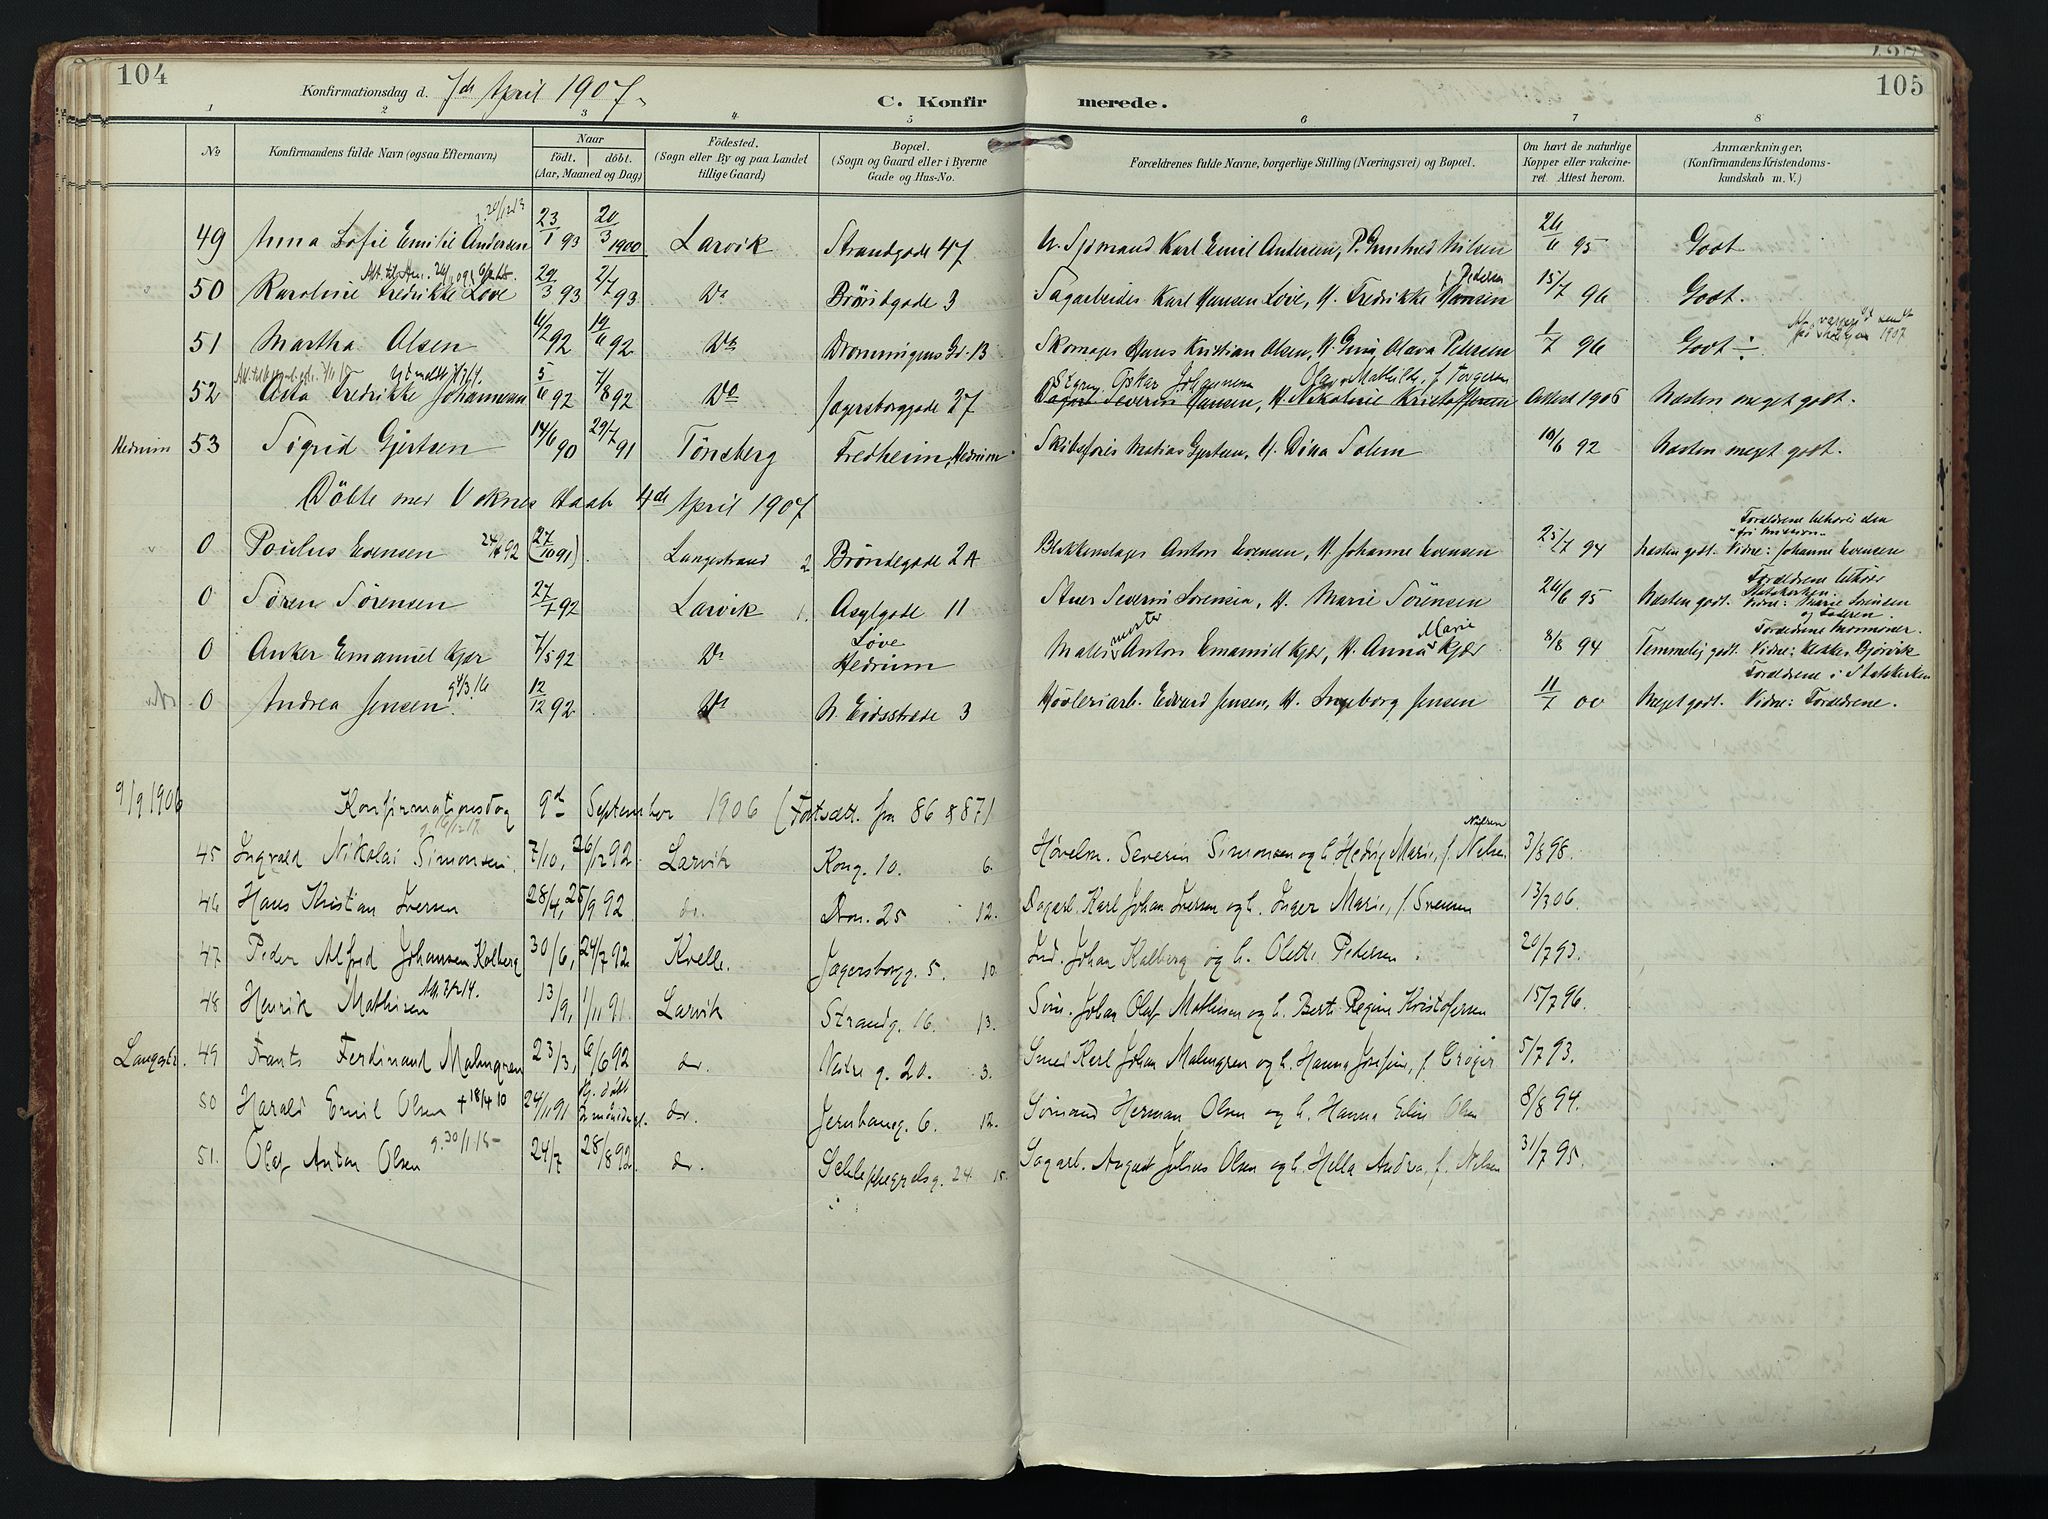 104
Konfirmationsdag d. 7de April 1907.
C. Konfirmerede.
105
1 2 3 4 5 6 7 8
No
Konfirmandens fulde Navn (ogsaa Efternavn)
Naar födt. döbt. (Aar, Maaned og Dag)
Födested. (Sogn eller By og paa Landet tillige Gaard)
Bopæl. (Sogn og Gaard eller i Byerne Gade og Hus-No.
Forældrenes fulde Navne, borgerlige Stilling (Næringsvei) og Bopæl.
Om havt de naturlige Kopper eller vakcineret. Attest herom.
Anmærkninger, (Konfirmandens Kristendomskundskab m. V.)
49 Anna Sofie Emilie Andersen 23/1 93 20/3 1900 Larvik Strandgade 47 U. Sjömand Karl Emil Andersen, P. Gunhild Nilsen 26/6 95 Godt.
50 Karoline Fredrikke Löve 29/3 93 2/7 93 Do Bröndgade 3 Sagarbeider Karl Hansen Löve, H. Fredrikke Hansen f. Pedersen 15/7 96 Godt.
51 Martha Olsen 11/2 92 19/6 92 Do Dronningens Gd. 13 Skomager Hans Kristian Olsen, H. Gina Olava Pedersen 1/7 96 Godt
52 Asta Fredrikke Johannesen 5/6 92 7/8 92 Do Jagersborggade 27 Oskar Johannesen Olga Mathilde, f. Torgersen
Dagarb. Severin Hansen, H. Nikoline Kristoffersen Attest 1906 Næsten meget godt.
Hedrum 53 Sigrid Gjertsen 14/6 90 29/7 91 Tönsberg Fredheim, Hedrum Skibsförer Mathias Gjertsen, H. Dina Solem 10/6 92 Næsten meget godt.
Döbte med Voknes Daab 4de April 1907
0 Paulus Evensen 24/4 92 (27/10 91) Langestrand 2 Bröndegade 2A Blikkenslager Anton Evensen, H. Johanne Evensen 25/7 94 Næsten godt. Vidne: Johanne Evensen
Forældrene tilhører den fri Mission.
0 Sören Sörensen 27/7 92 Larvik 1. Asylgade 11 Stuer Severin Sörensen, H. Marie Sörensen 26/6 95 Næsten godt. Vidne: Marie Sörensen
Forældrene tilhører Statskirken.
0 Anker Emanuel Kjær 7/5 92 Do Löve Hedrum Malermester Anton Emanuel Kjær, H. Anna Marie Kjær 8/8 94 Temmelig godt. Vidne: Klokker Gjörvik
Forældrene Mormoner.
0 Andrea Jensen 12/12 92 Do N. Eidsstræde 3 Hövleriarb. Edvard Jensen, H. Ingeborg Jensen 11/7 00 Meget godt. Vidne: Forældrene.
Forældrene i Statskirken
9/9 1906 Konfirmationsdag 9d September 1906 (Fortsætt. fra 86 & 87)
45 Ingvald Nikolai Simonsen 7/10, 26/12 92 Larvik Kong. 10. 6. Høvelm. Severin Simonsen og h. Hedvig Marie, f. Nilsen 3/8 98.
46 Hans Kristian Iversen 28/4, 25/9 92 do. Dron. 25 12. Dagarb. Karl Johan Iversen og h. Inger Marie, f. Svensen 13/3 06.
47 Peder Alfred Johansen Kalberg 30/6, 24/7 92 Kvelle. Jagersborgg. 5. 10. Ind. Johan Kalberg og h. Olette Pedersen 20/7 93.
48 Henrik Mathisen 13/9, 1/11 91 Larvik Strandg. 16. 13. Söm. Johan Olaf Mathisen og h. Berte Regine Kristofersen 15/7 96.
Langestr. 49 Frants Ferdinand Malmgren 23/3, 6/6 92 do. Nedre g. 20. 3. Smed Karl Johan Malmgren og h. Hanna Josefine, f. Gröger 5/7 93.
50 Harald Emil Olsen + 18/4 10 24/11 91 do. Jernbaneg. 6. 12. Sömand Herman Olsen og h. Hanna Eline Olsen 8/8 94.
51. Olaf Anton Olsen g. 30/11.18 24/7 28/8 92 do. Schleppegrelsg. 24. 15. Sagarb. August Julius Olsen og h. Hella Andrea, f. Nilsen 31/7 95.